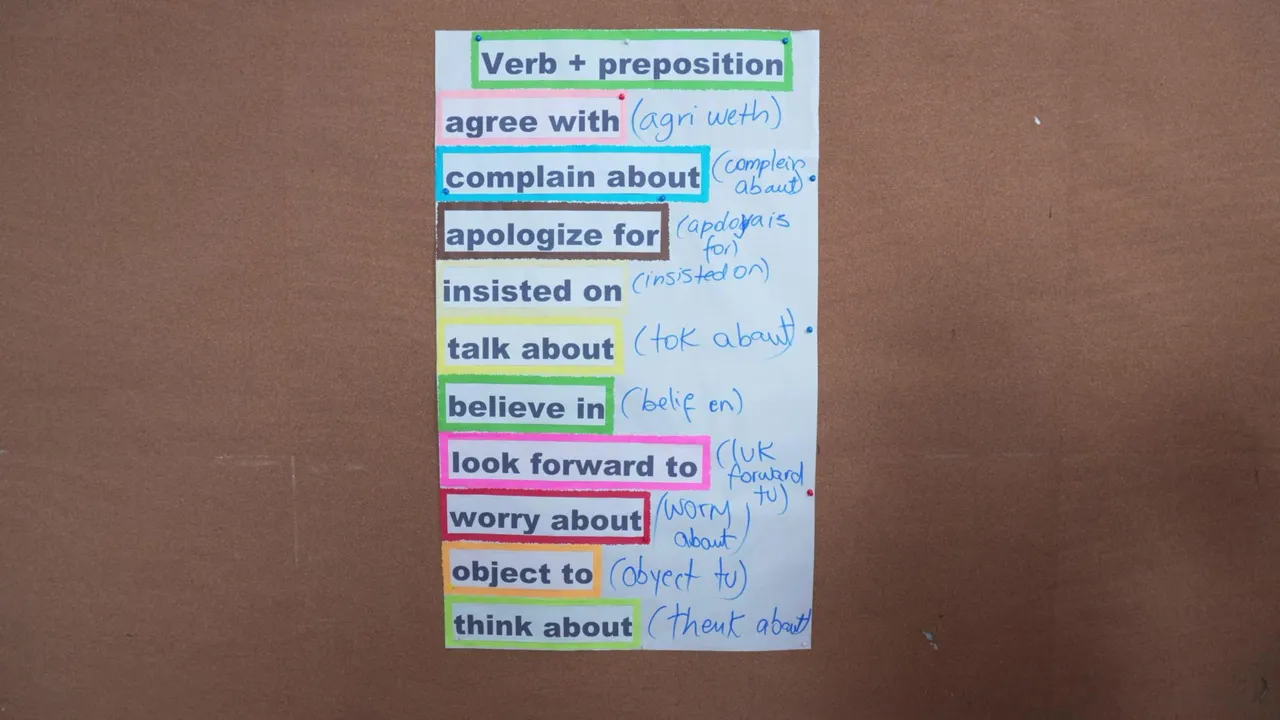 Verb + preposition
agree with (agri weth)
complain about (complein
abaut)
apologize for
for)
insisted on (insisted on)
talk about (tok abaut)
believe in (belif en)
look forward to (luk
forward
tu)
worry about (worry
about)
object to (obyect tu)
think about (thenk about)